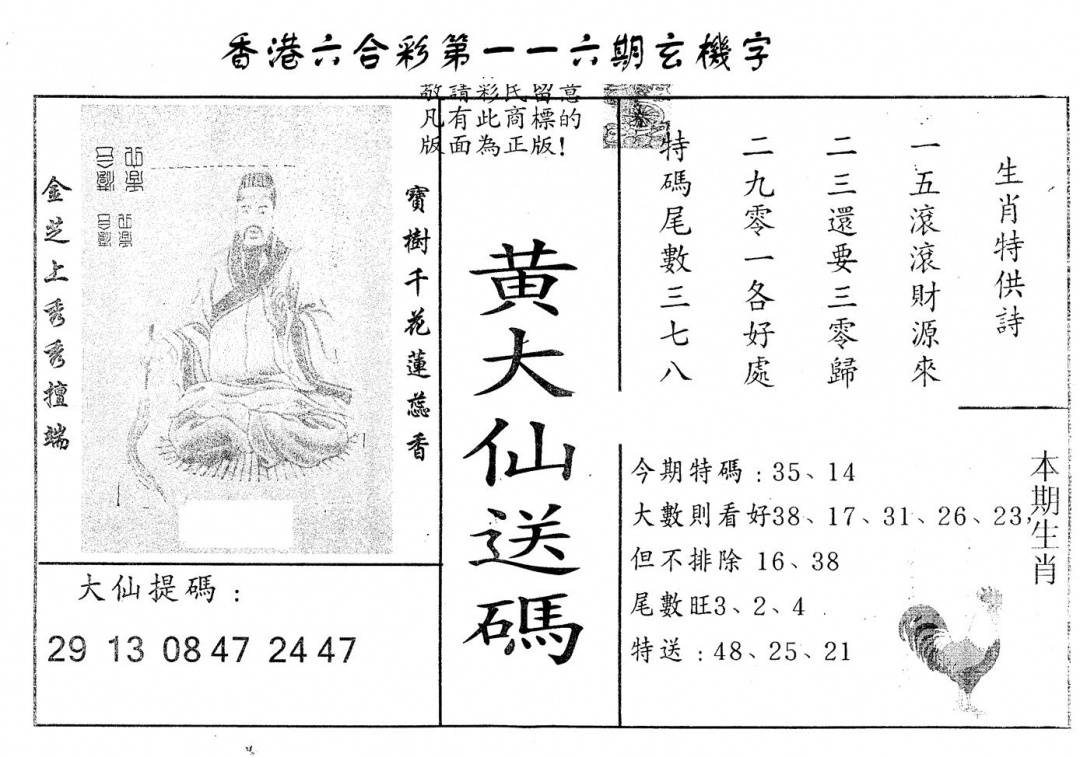 香港六合彩第一一六期玄機字
敬請彩民留意
凡有此商標的
版面為正版!
金芝上秀秀擅端
寶樹千花蓮蕊香
大仙提碼：
29 13 08 47 24 47
黃大仙送碼
生肖特供詩
一五滾滾財源來
二三還要三零歸
二九零一各好處
特碼尾數三七八
本期生肖
今期特碼：35、14
大數則看好38、17、31、26、23,
但不排除 16、38
尾數旺3、2、4
特送：48、25、21